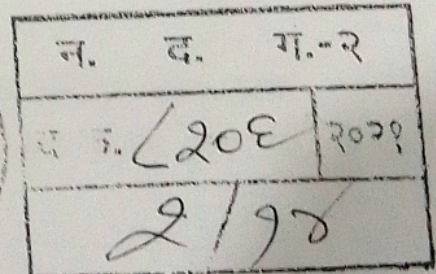 न. द. ग.-२
द क्र. ८२०६ २०२१
२/१४